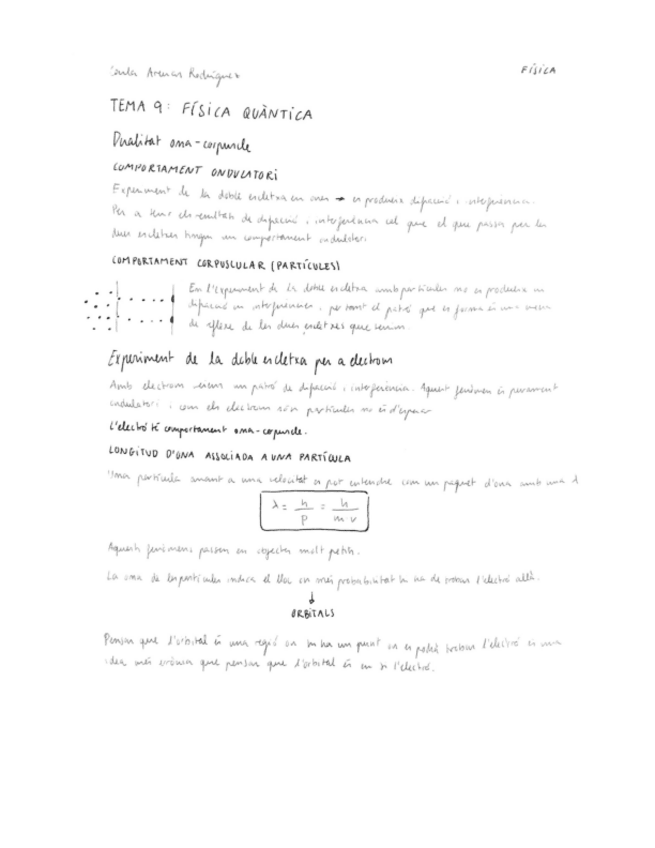 Carla Arenas Rodríguez
FÍSICA
TEMA 9: FÍSICA QUÀNTICA
Dualitat ona-corpuscle
COMPORTAMENT ONDULATORI
Experiment de la doble escletxa en ones → es produeix difracció i interferència.
Per a tenir els resultats de difracció i interferència cal que el que passa per les
dues escletxes tingui un comportament ondulatori.
COMPORTAMENT CORPUSCULAR (PARTÍCULES)
En l'experiment de la doble escletxa amb partícules no es produeix ni
difracció ni interferències, per tant el patró que es forma és una mena
de reflexe de les dues escletxes que tenim.
Experiment de la doble escletxa per a electrons
Amb electrons veiem un patró de difracció i interferència. Aquest fenomen és purament
ondulatori i com els electrons són partícules no és d'esperar
L'electró té comportament ona-corpuscle.
LONGITUD D'ONA ASSOCIADA A UNA PARTÍCULA
Una partícula anant a una velocitat es pot entendre com un paquet d'ona amb una λ
λ = h/p = h/m·v
Aquests fenòmens passen en objectes molt petits.
La ona de les partícules indica el lloc on més probabilitat hi ha de trobar l'electró allà.
↓
ORBITALS
Pensar que l'orbital és una regió on hi ha un punt on es podrà trobar l'electró és una
idea més errònia que pensar que l'orbital és en si l'electró.